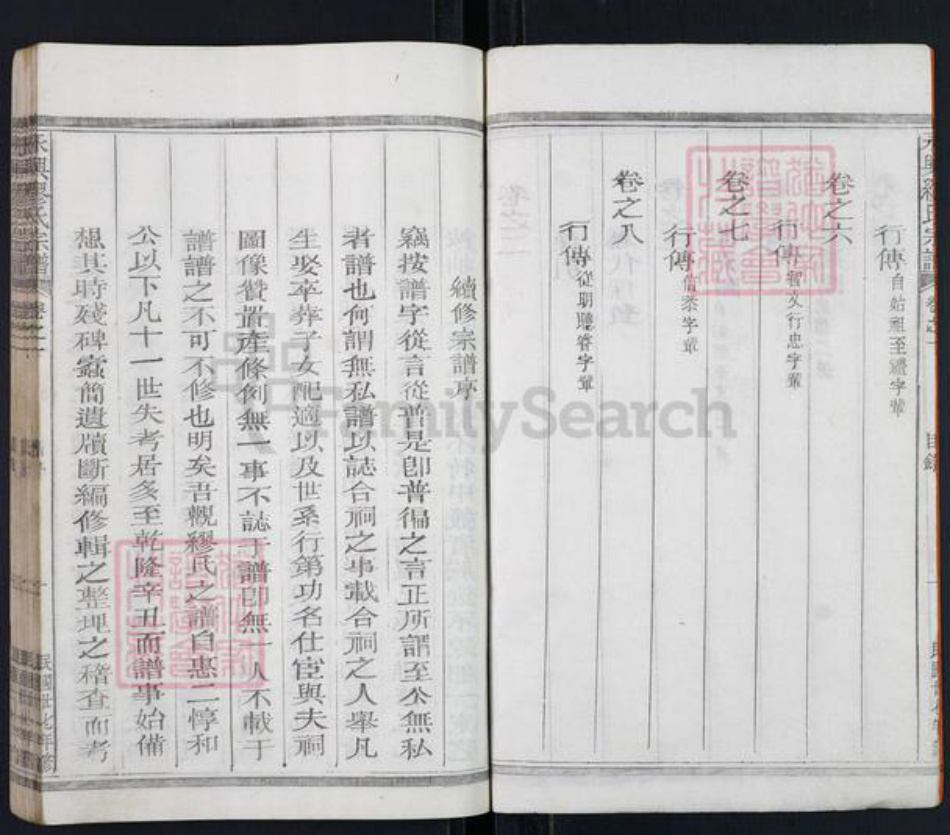 行傳自始祖至禮字輩
卷之六
行傳智文行忠字輩
卷之七
行傳信崇字輩
卷之八
行傳從明聰睿字輩
續修宗譜序
竊按譜字從言從普是卽普徧之言正所謂至公無私
者譜也何謂無私譜以誌合祠之事載合祠之人舉凡
生娶卒葬子女配適以及世系行第功名仕宦與夫祠
圖像贊置產條例無一事不誌于譜卽無一人不載于
譜譜之不可不修也明矣吾觀繆氏之譜自惠二惇和
公以下凡十一世失考居多至乾隆辛丑而譜事始備
想其時殘碑蠹簡遺牘斷編修輯之整理之稽查而考
永興繆氏宗譜
卷之一
民國卅七年修
永興繆氏宗譜
卷之一
目錄
FamilySearch